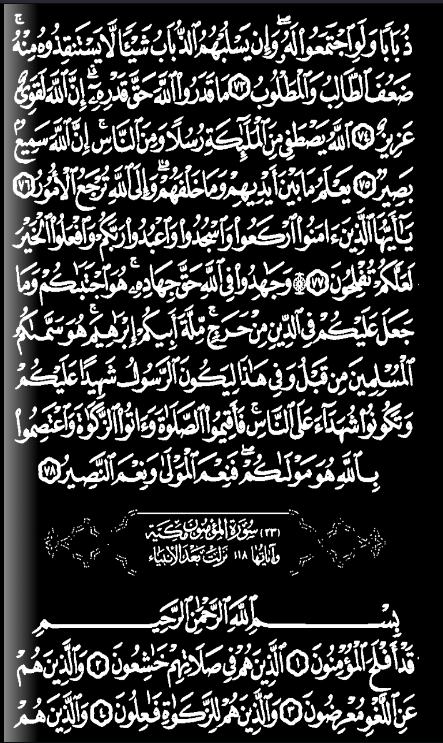 ذُبَابًا وَلَوِ ٱجْتَمَعُوا۟ لَهُۥ ۖ وَإِن يَسْلُبْهُمُ ٱلذُّبَابُ شَيْـًٔا لَّا يَسْتَنقِذُوهُ مِنْهُ ۚ
ضَعُفَ ٱلطَّالِبُ وَٱلْمَطْلُوبُ ٧٣ مَا قَدَرُوا۟ ٱللَّهَ حَقَّ قَدْرِهِۦٓ ۗ إِنَّ ٱللَّهَ لَقَوِىٌّ
عَزِيزٌ ٧٤ ٱللَّهُ يَصْطَفِى مِنَ ٱلْمَلَـٰٓئِكَةِ رُسُلًا وَمِنَ ٱلنَّاسِ ۚ إِنَّ ٱللَّهَ سَمِيعٌۢ
بَصِيرٌ ٧٥ يَعْلَمُ مَا بَيْنَ أَيْدِيهِمْ وَمَا خَلْفَهُمْ ۗ وَإِلَى ٱللَّهِ تُرْجَعُ ٱلْأُمُورُ ٧٦
يَـٰٓأَيُّهَا ٱلَّذِينَ ءَامَنُوا۟ ٱرْكَعُوا۟ وَٱسْجُدُوا۟ وَٱعْبُدُوا۟ رَبَّكُمْ وَٱفْعَلُوا۟ ٱلْخَيْرَ
لَعَلَّكُمْ تُفْلِحُونَ ۩ ٧٧ وَجَـٰهِدُوا۟ فِى ٱللَّهِ حَقَّ جِهَادِهِۦ ۚ هُوَ ٱجْتَبَىٰكُمْ وَمَا
جَعَلَ عَلَيْكُمْ فِى ٱلدِّينِ مِنْ حَرَجٍ ۚ مِّلَّةَ أَبِيكُمْ إِبْرَٰهِيمَ ۚ هُوَ سَمَّىٰكُمُ
ٱلْمُسْلِمِينَ مِن قَبْلُ وَفِى هَـٰذَا لِيَكُونَ ٱلرَّسُولُ شَهِيدًا عَلَيْكُمْ
وَتَكُونُوا۟ شُهَدَآءَ عَلَى ٱلنَّاسِ ۚ فَأَقِيمُوا۟ ٱلصَّلَوٰةَ وَءَاتُوا۟ ٱلزَّكَوٰةَ وَٱعْتَصِمُوا۟
بِٱللَّهِ هُوَ مَوْلَىٰكُمْ ۖ فَنِعْمَ ٱلْمَوْلَىٰ وَنِعْمَ ٱلنَّصِيرُ ٧٨
(٢٣) سورة المؤمنون مكية
وآياتها ١١٨ نزلت بعد الأنبياء
بِسْمِ ٱللَّهِ ٱلرَّحْمَـٰنِ ٱلرَّحِيمِ
قَدْ أَفْلَحَ ٱلْمُؤْمِنُونَ ١ ٱلَّذِينَ هُمْ فِى صَلَاتِهِمْ خَـٰشِعُونَ ٢ وَٱلَّذِينَ هُمْ
عَنِ ٱللَّغْوِ مُعْرِضُونَ ٣ وَٱلَّذِينَ هُمْ لِلزَّكَوٰةِ فَـٰعِلُونَ ٤ وَٱلَّذِينَ هُمْ